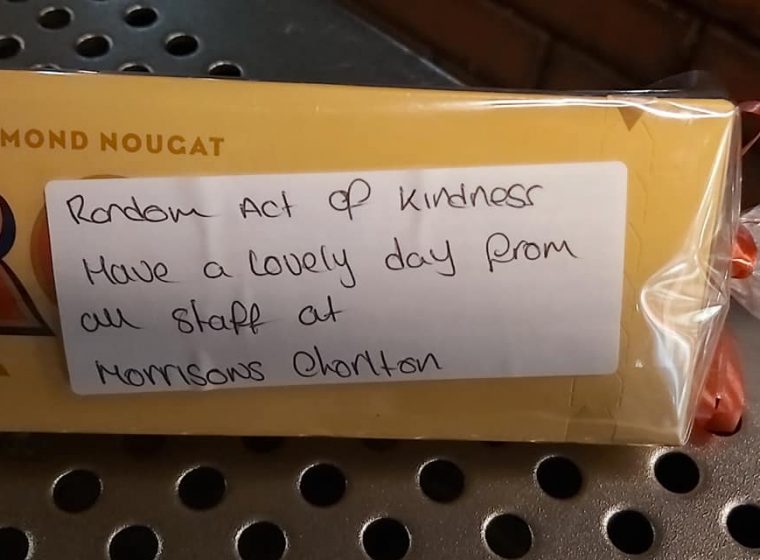 MOND NOUGAT
Random Act of Kindness
Have a lovely day from
all staff at
Morrisons Chorlton